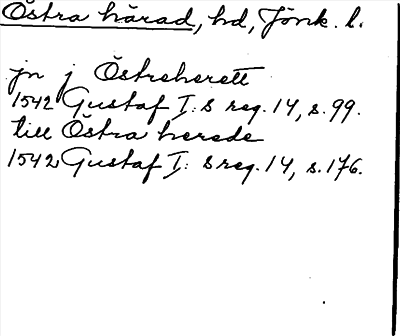 Östra härad, hd, Jönk. l.
jn j Östreherett
1542 Gustaf I:s reg. 14, s. 99.
till Östra herede
1542 Gustaf I:s reg. 14, s. 176.